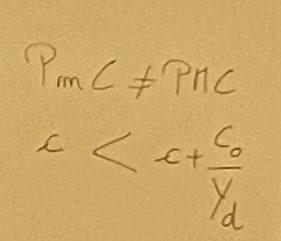 PmC ≠ PMC
c < c + C₀/Yd